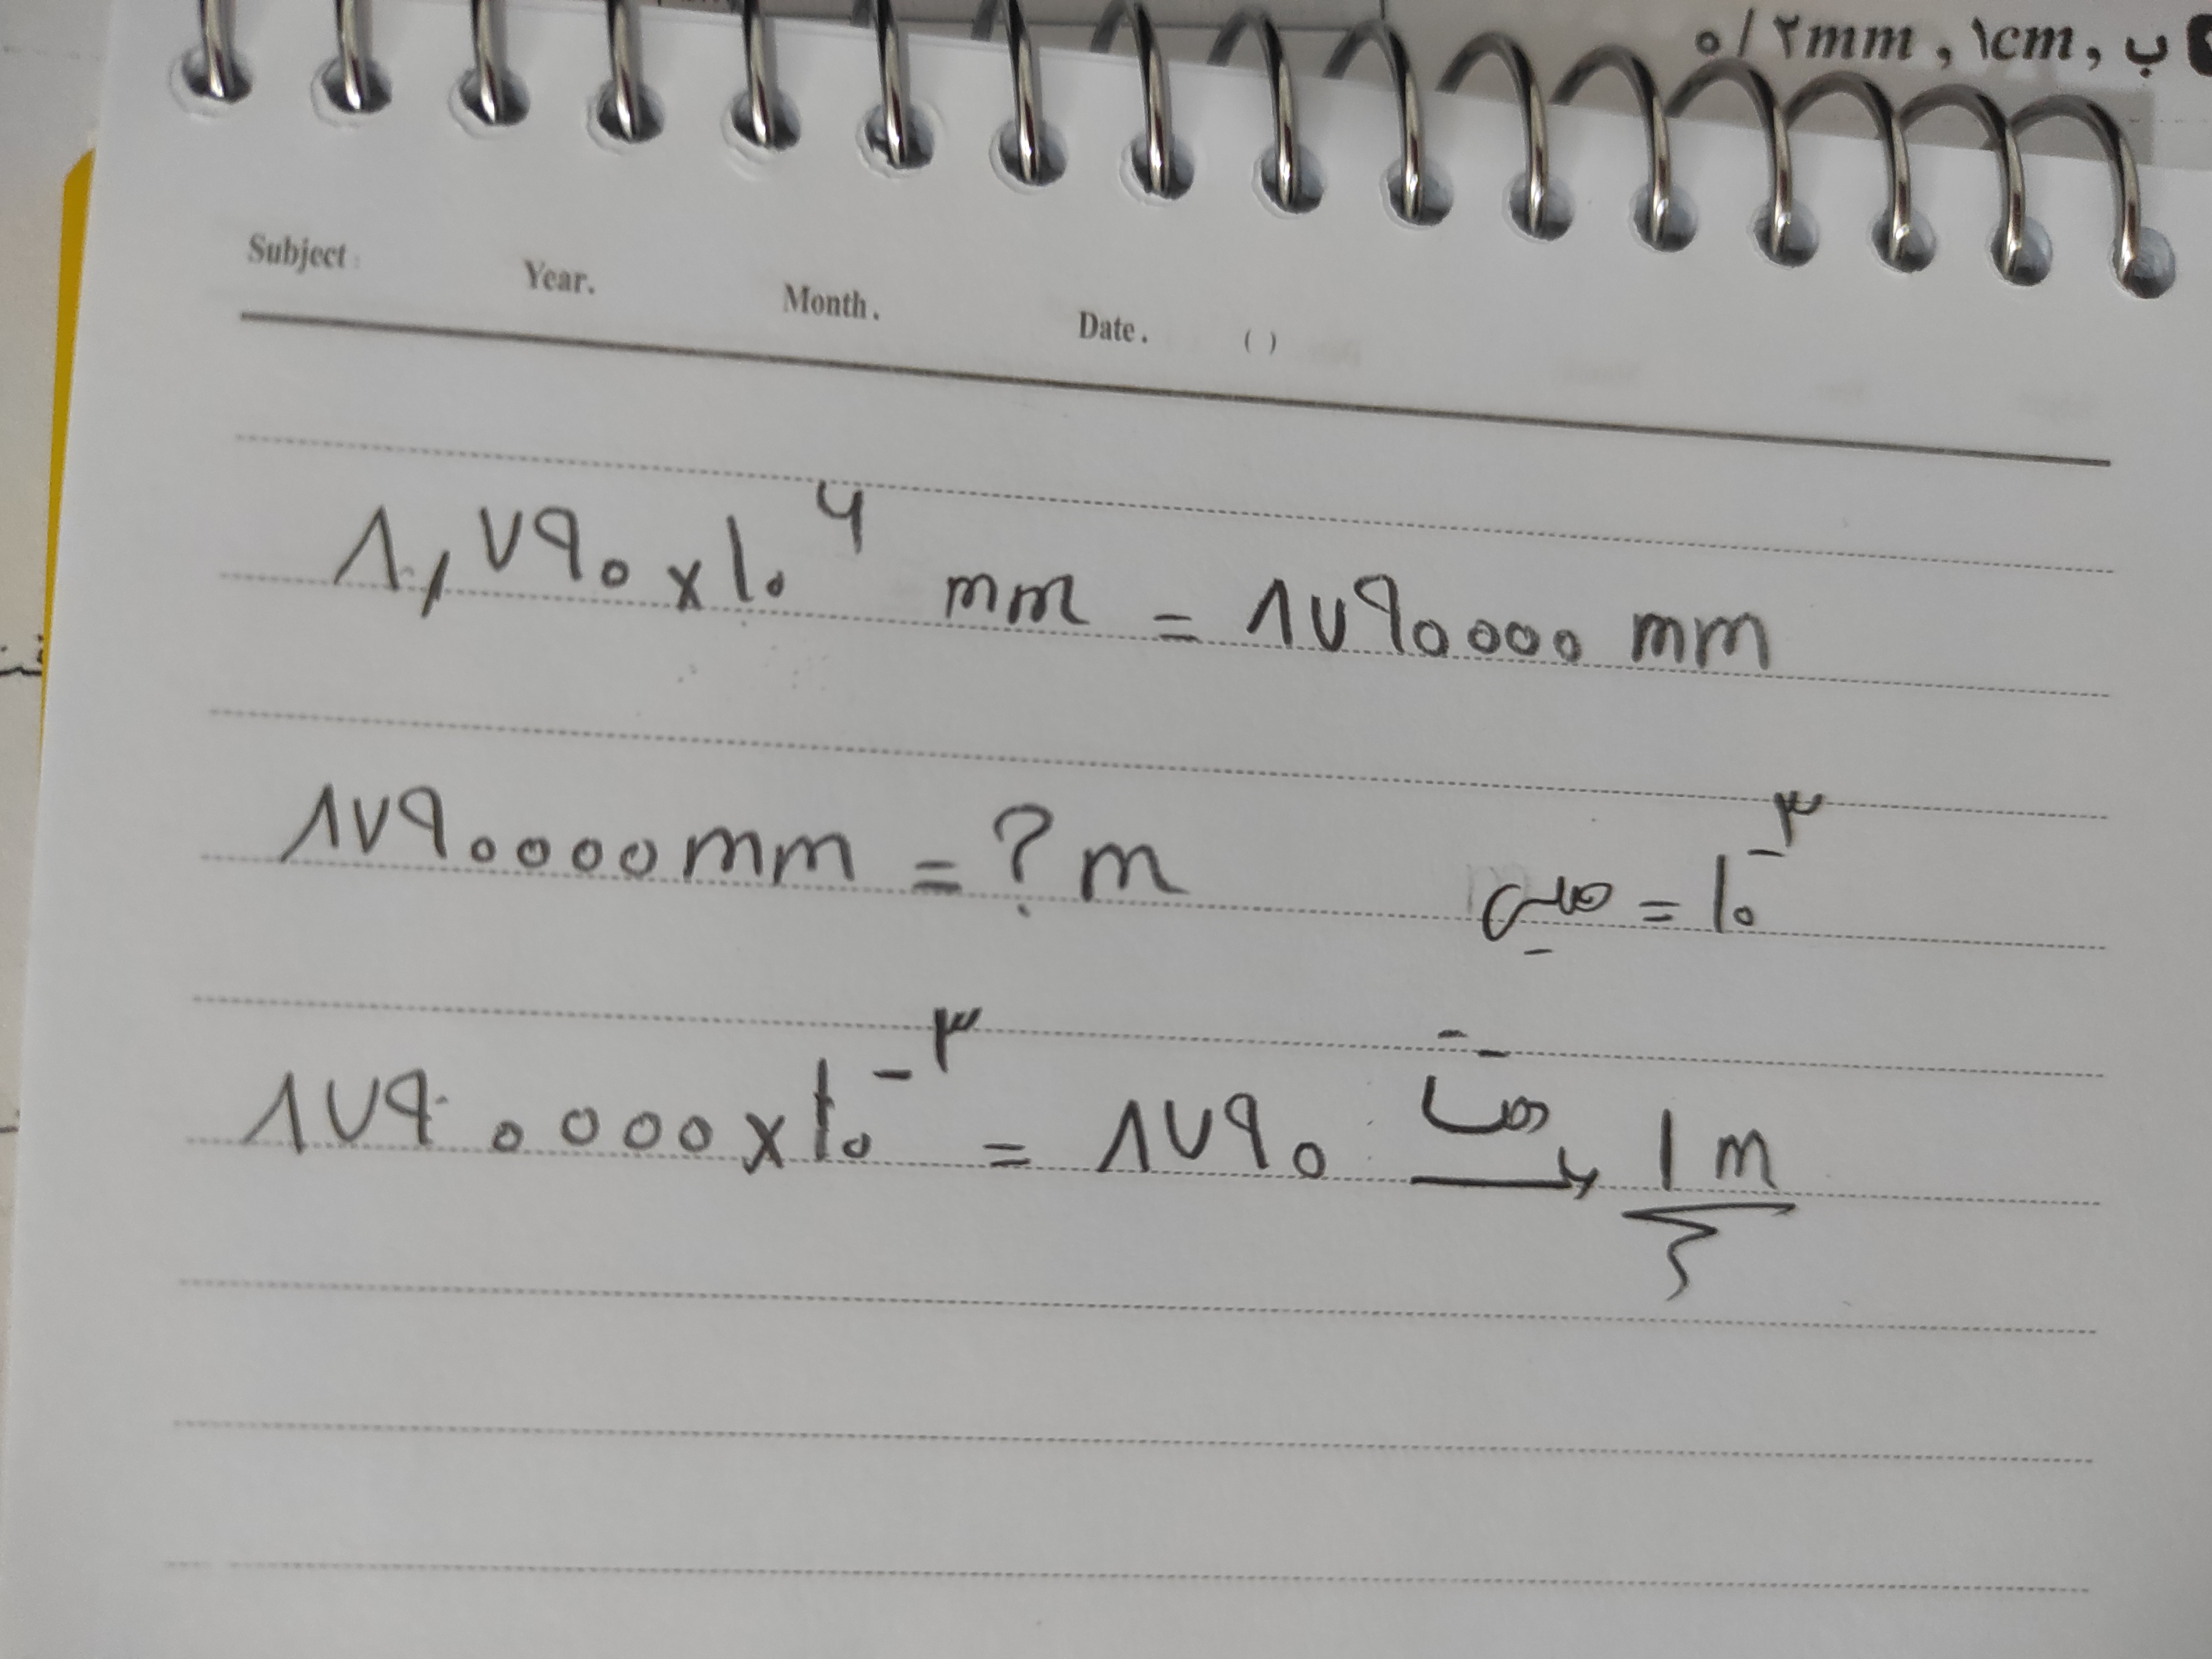 ۰/۲mm , ۱cm , ب
Subject: Year. Month. Date. ( )
۸,۷۹۰×۱۰^۶ mm = ۸۷۹۰۰۰۰ mm
۸۷۹۰۰۰۰mm = ? m میلی = ۱۰^-۳
۸۷۹۰۰۰۰×۱۰^-۳ = ۸۷۹۰ دقت ۱m